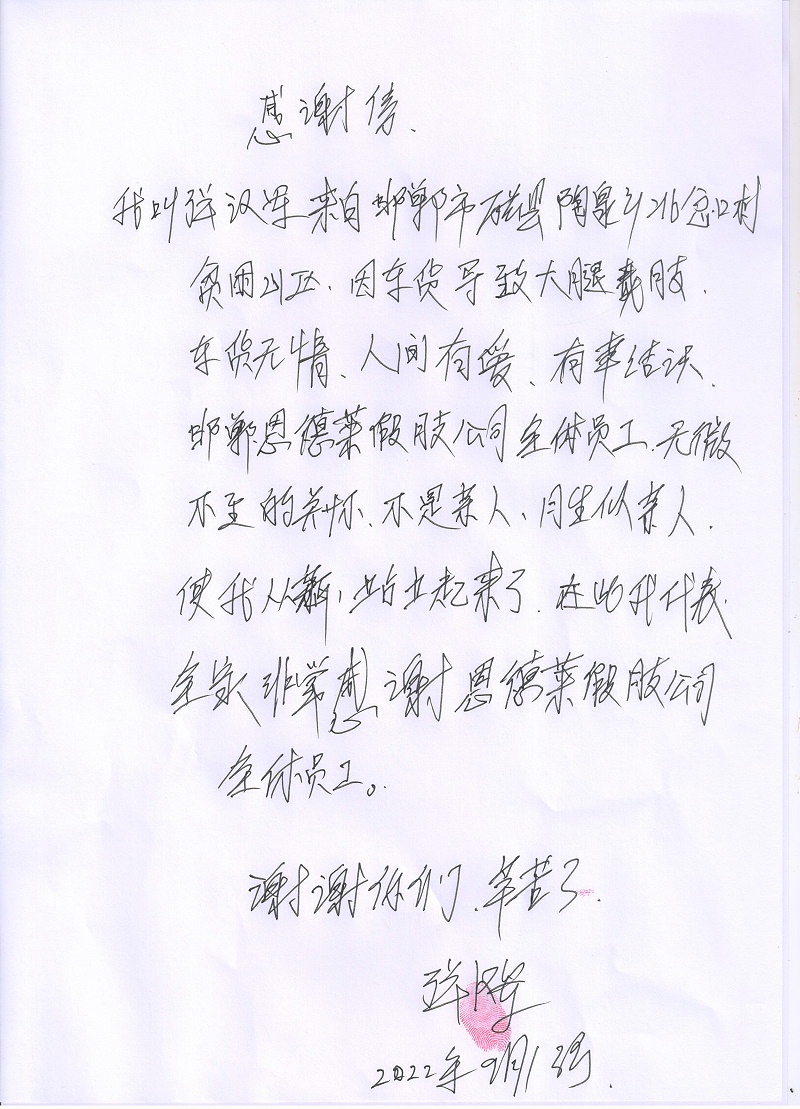 感谢信.
我叫张汉军来自邯郸市磁县陶泉乡北岔口村
贫困山区.因车货导致大腿截肢.
车货无情、人间有爱、有幸结识、
邯郸恩德莱假肢公司全体员工.无微
不至的关怀、不是亲人、胜似亲人.
使我从新,站立起来了.在此我代表.
全家非常感谢恩德莱假肢公司
全体员工。
谢谢你们.辛苦了.
张
2022年9月13号.